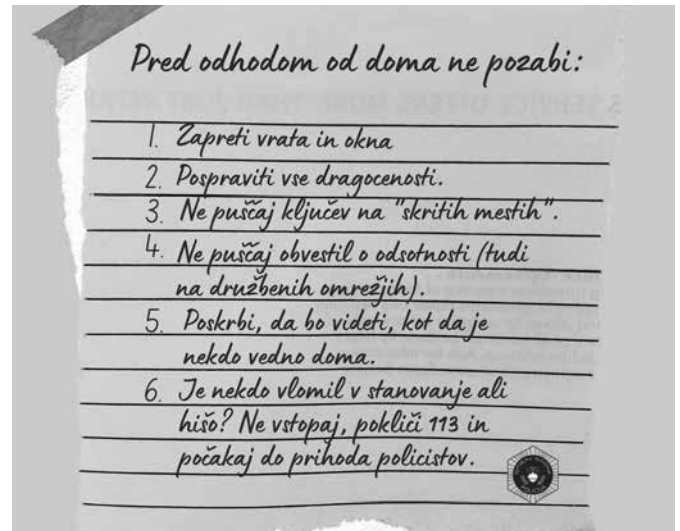 Pred odhodom od doma ne pozabi:
1. Zapreti vrata in okna
2. Pospraviti vse dragocenosti.
3. Ne puščaj ključev na "skritih mestih".
4. Ne puščaj obvestil o odsotnosti (tudi
na družbenih omrežjih).
5. Poskrbi, da bo videti, kot da je
nekdo vedno doma.
6. Je nekdo vlomil v stanovanje ali
hišo? Ne vstopaj, pokliči 113 in
počakaj do prihoda policistov.